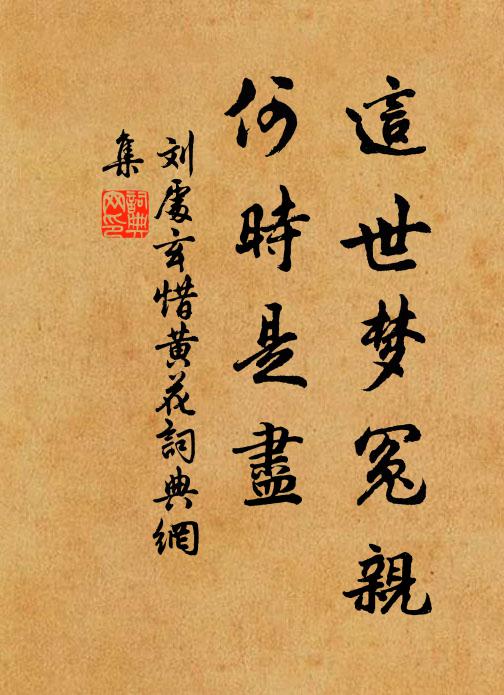 這世梦冤親
何時是盡
刘處玄惜黄花詞典網
集
詞典
网印